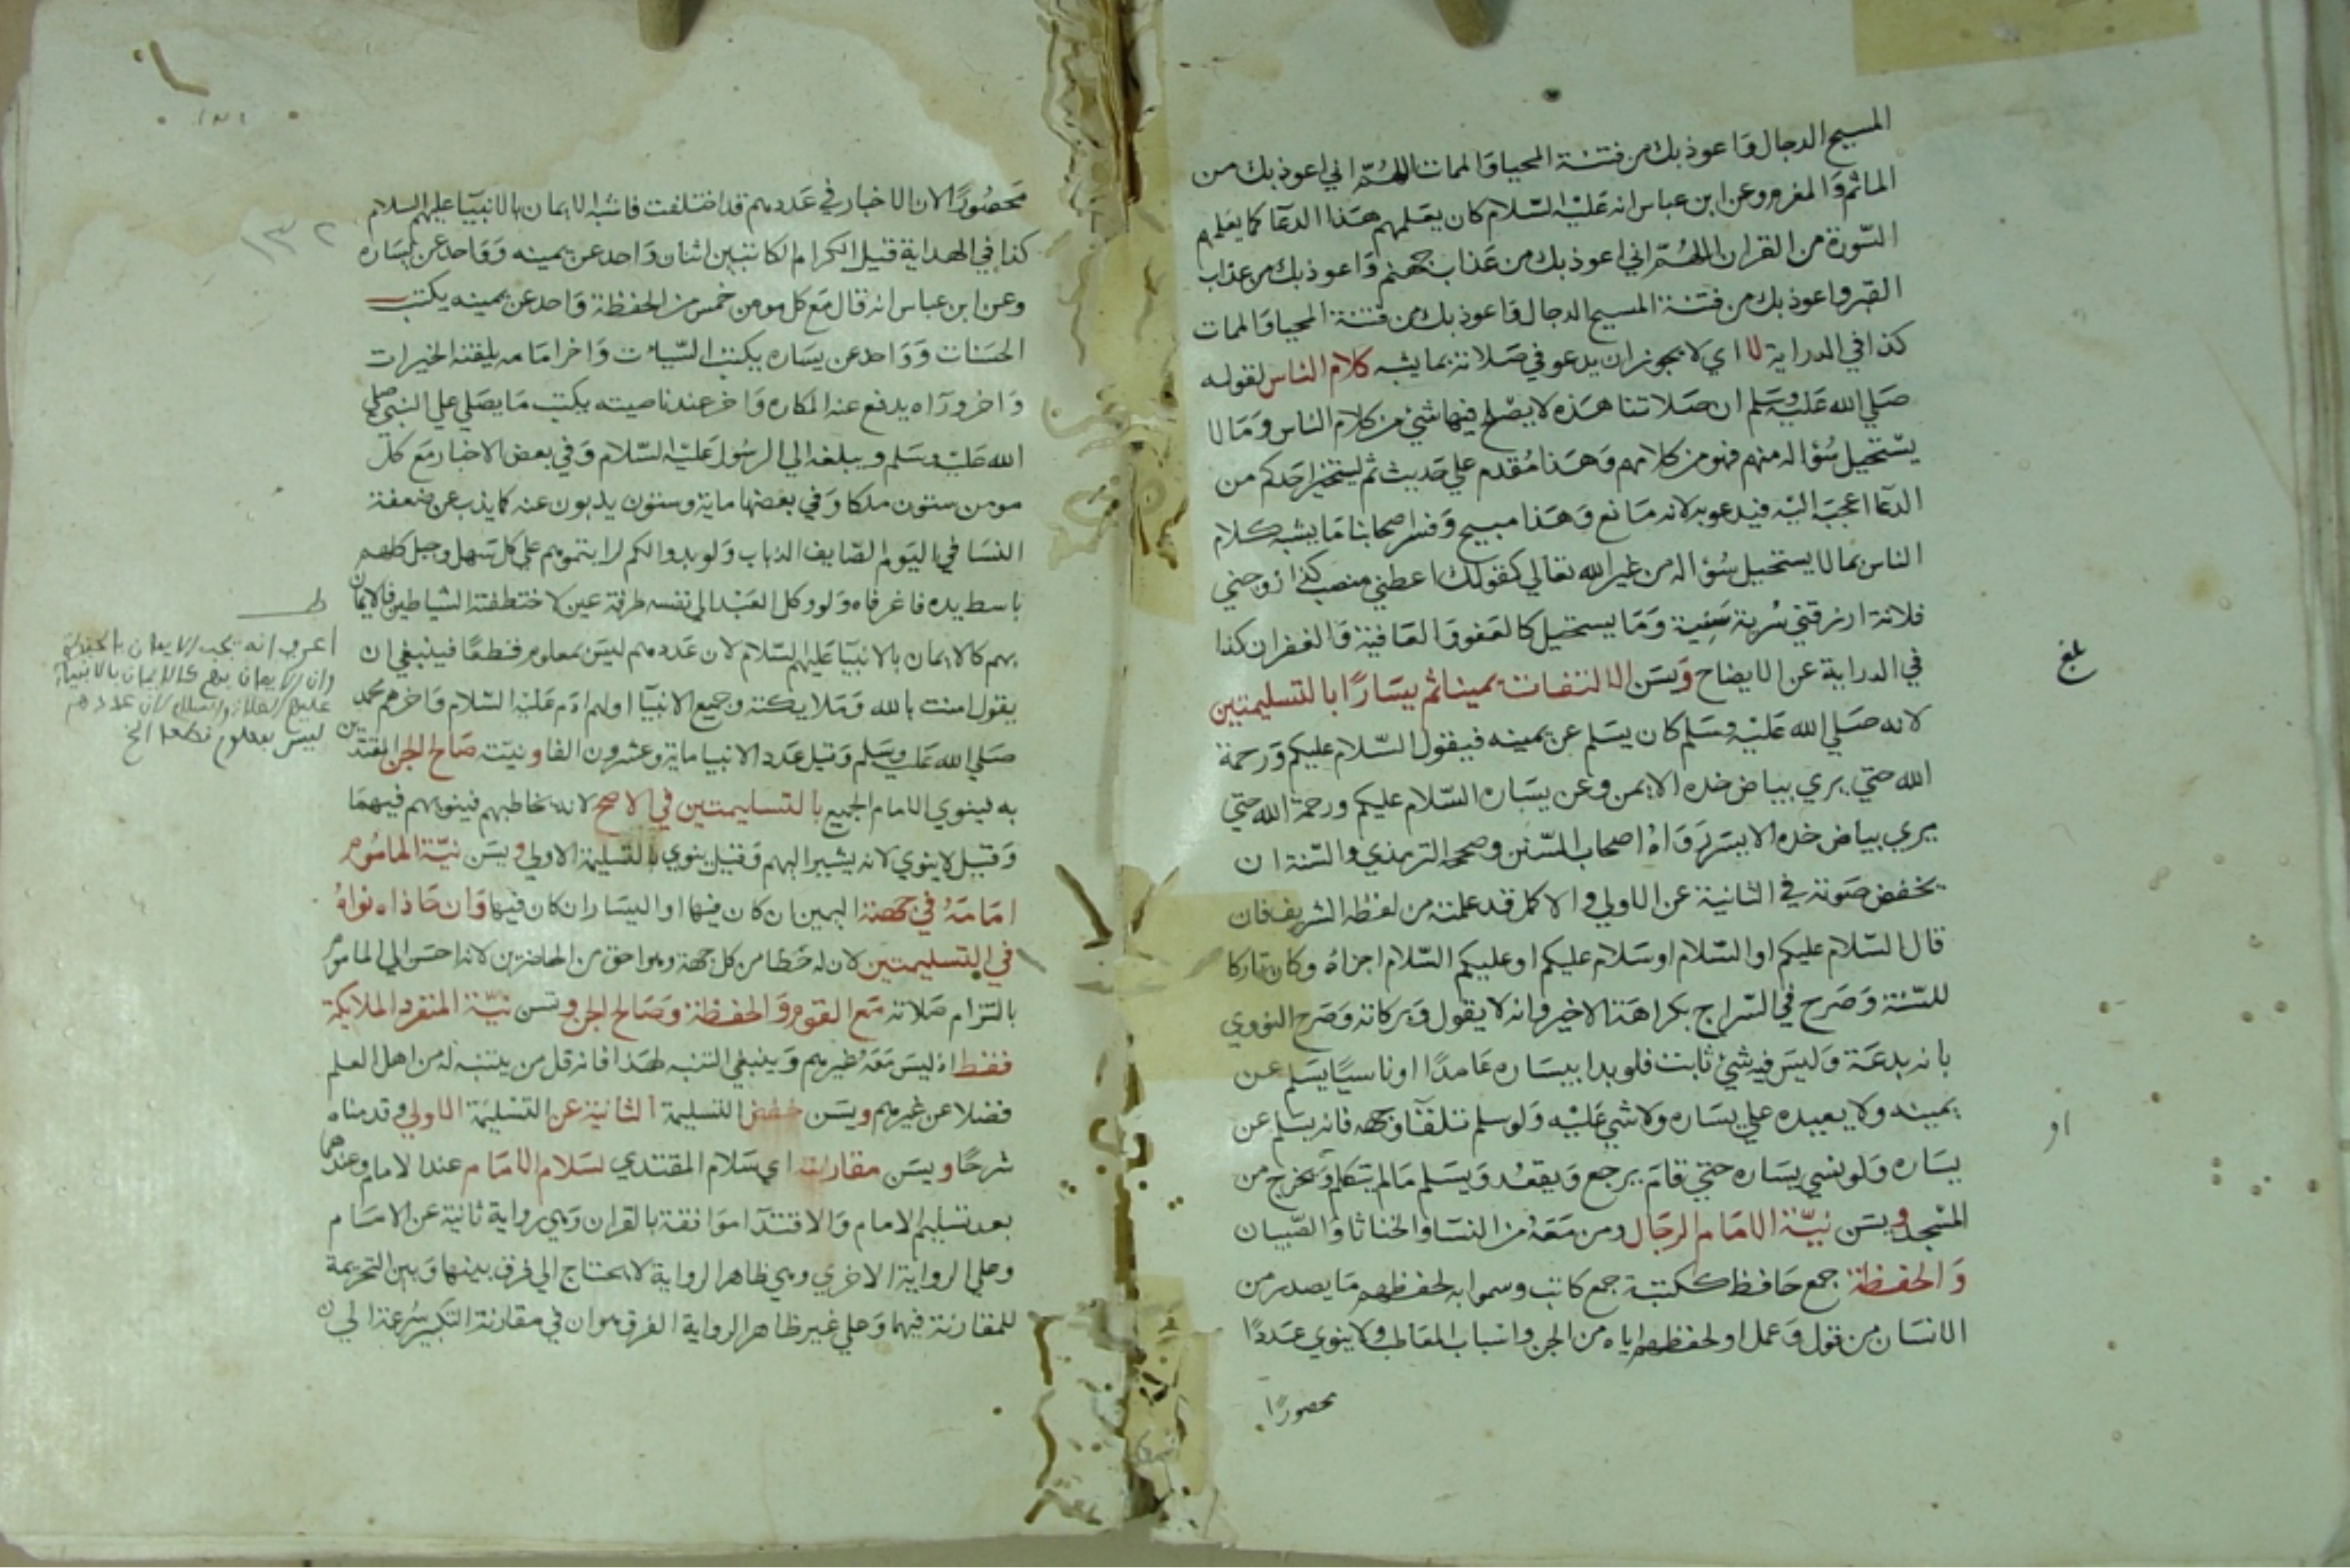 المسيح الدجال وَاعوذ بك من فتنة المحيا وَالممات اللهُمّ اني اعوذ بك من
الماثم وَالمغرم وعن ابن عباس انه عَليْه السّلام كان يعَلمهم هَذا الدعَا كما يعَلمهم
السّورة من القران اللهُمّ اني اعوذ بك من عَذاب جهنم وَاعوذ بك من عذاب
القبر واعوذ بك من فتنة المسيح الدجال وَاعوذ بك من فتنة المحيا وَالممات
كذا في الدراية لا اي لا يجوز ان يدعو في صَلاته بما يشبه كلام الناس لقوله
صَلي الله عَليْه وسَلم ان صَلاتنا هَذه لا يصْلح فيها شيْ من كلام الناس وَمَا لا
يسْتحيل سُؤاله منهم فهو من كلامهم وَهَذا مُقدم علي حَديث ثم ليتخير احَدكم من
الدعَا اعجبَه اليْه فيدعو به لانه مَانع وَهَذا مبيح وَفسر اصحابنا مَا يشبه كلام
الناس بما لا يستحيل سُؤاله من غير الله تعَالي كقولك اعطني منصب كذا زوجني
فلانة ارزقني سُرية سَنِية وَمَا يستحيل كالعَفو وَالعَافية وَالغفران كذا
في الدراية عن الايضاح وَيسَن الالتفات يمينا ثم يسَارًا بالتسليمتين
لانه صَلي الله عَليْه وسَلم كان يسَلم عن يمينه فيقول السّلام عليكم وَرحمة
الله حتي يري بياض خده الايمن وعن يسَاره السّلام عليكم ورحمة الله حتي
يري بياض خده الايسَر رَوَاهُ اصحاب السّنن وصححه الترمذي والسّنة ان
يخفض صَوته في الثانية عن الاولي والاكمل قد علمته من لفظه الشريف فان
قال السّلام عليكم او السّلام او سَلام عليكم او عليكم السّلام اجزاهُ وكان تاركا
للسّنة وَصَرح في السّراج بكراهَة الاخير وانه لا يقول وَبركاته وَصَرح النووي
بانه بدعَة وَليسَ فيه شيْ ثابت فلو بدا بيسَاره عَامدًا او ناسيًا يسَلم عن
يمينه ولا يعيده علي يسَاره ولا شي عَليْه وَلو سلم تلقآ وَجهه فانه يسَلم عن
يسَاره وَلو نسي يسَاره حتي قامَ يرجع وَيقعُد وَيسَلم مَا لم يتكلم وَيخرج من
المسْجد ويسَن نيّة الامَام الرجَال ومن مَعَهُ من النسَا وَالخناثا وَالصّبيان
وَالحفظة جمع حَافظ ككتبة جمع كاتب وسموا به لحفظهم مَا يصدر من
الانسَان من قول وَعمل او لحفظهم اياه من الجن واسباب المعَاطب ولا ينوي عَددًا
محصورًا
بلغ
او
١٣٢
مَحصُورًا لان الاخبار في عَددهم قد اختلفت فاشبه الايمان بالانبيآ عليهم السلام
كذا في الهداية قيل الكرام الكاتبين اثنان وَاحد عن يمينه وَوَاحد عن يسَاره
وعن ابن عباس انه قال مَع كل مومن خمس من الحفظة وَاحد عن يمينه يكتب
الحسَنات وَوَاحد عن يسَاره يكتب السّيات وَاخر امَامه يلقنه الخيرات
وَاخر ورآه يدفع عنه المكاره وَاخر عند ناصيته يكتب مَا يصَلي علي النبي صلي
الله عَليْه وسَلم ويبلغه الي الرسُول عَليْه السّلام وَفي بعض الاخبار مَع كل
مومن ستون ملكا وَفي بعضها ماية وستون يذبون عنه كما يذب عن ضعفة
النسَا في اليوم الصّايف الذباب وَلو بدوا لكم لرايتموهم علي كل سَهل وجبل كلهم
باسط يده فاغر فاه وَلو وكل العَبْد الي نفسه طرفة عين لاختطفته الشياطين فالايمان
بهم كالايمان بالانبيآ عَليْهم السّلام لان عَددهم ليسَ بمعلوم قطعًا فينبغي ان
يقول امنت بالله وَمَلايكته وجميع الانبيآ اولهم ادَم عَليْه السّلام وَاخرهم محمد
صَلي الله عَليه وسَلم وَقيل عَدد الانبيا ماية وعشرون الفا ونيّة صَالح الجن المقتدين
به فينوي الامام الجميع بالتسليمتين في الاصح لانه يخاطبهم فينويهم فيهمَا
وَقيل لا ينوي لانه يشير اليهم وَقيل ينوي بالتسْليمة الاولي ويسَن نيّة المامُوم
امَامَهُ في جهته اليمين ان كان فيها او اليسَار ان كان فيها وَان حَاذاه نواهُ
في التسليمتين لان له حَظا من كل جهة وهو احق من الحاضرين لانه احسَن الي الماموم
بالتزام صَلاته مَع القوم وَالحفظة وَصَالح الجن وتسَن نيّة المنفرد الملايكة
فقط اذ ليسَ مَعَهُ غيرهم وَينبغي التنبه لهَذا فانه قل من يتنبه له من اهل العلم
فضلا عن غيرهم ويسَن خفض التسليمة الثانية عن التسْليمَة الاولي وقدمناه
شرحًا ويسَن مقارنته اي سَلام المقتدي لسَلام الامَام عند الامام وعندهما
بعد تسْليم الامام وَالاقتدَا موَافقة بالقران وَهي رواية ثانية عن الامَام
وعلي الرواية الاخري وهي ظاهر الرواية لا يحتاج الي فرق بينها وَبين التحريمة
للمقارنة فيهما وَعلي غير ظاهر الرواية الفرق هو ان في مقارنة التكبير سُرعة الي
اعرب انه تجب الايمان بالحفظة
وان الايمان بهم كالايمان بالانبياء
عليهم الصلاة والسلام لان عددهم
ليس بمعلوم قطعا الخ